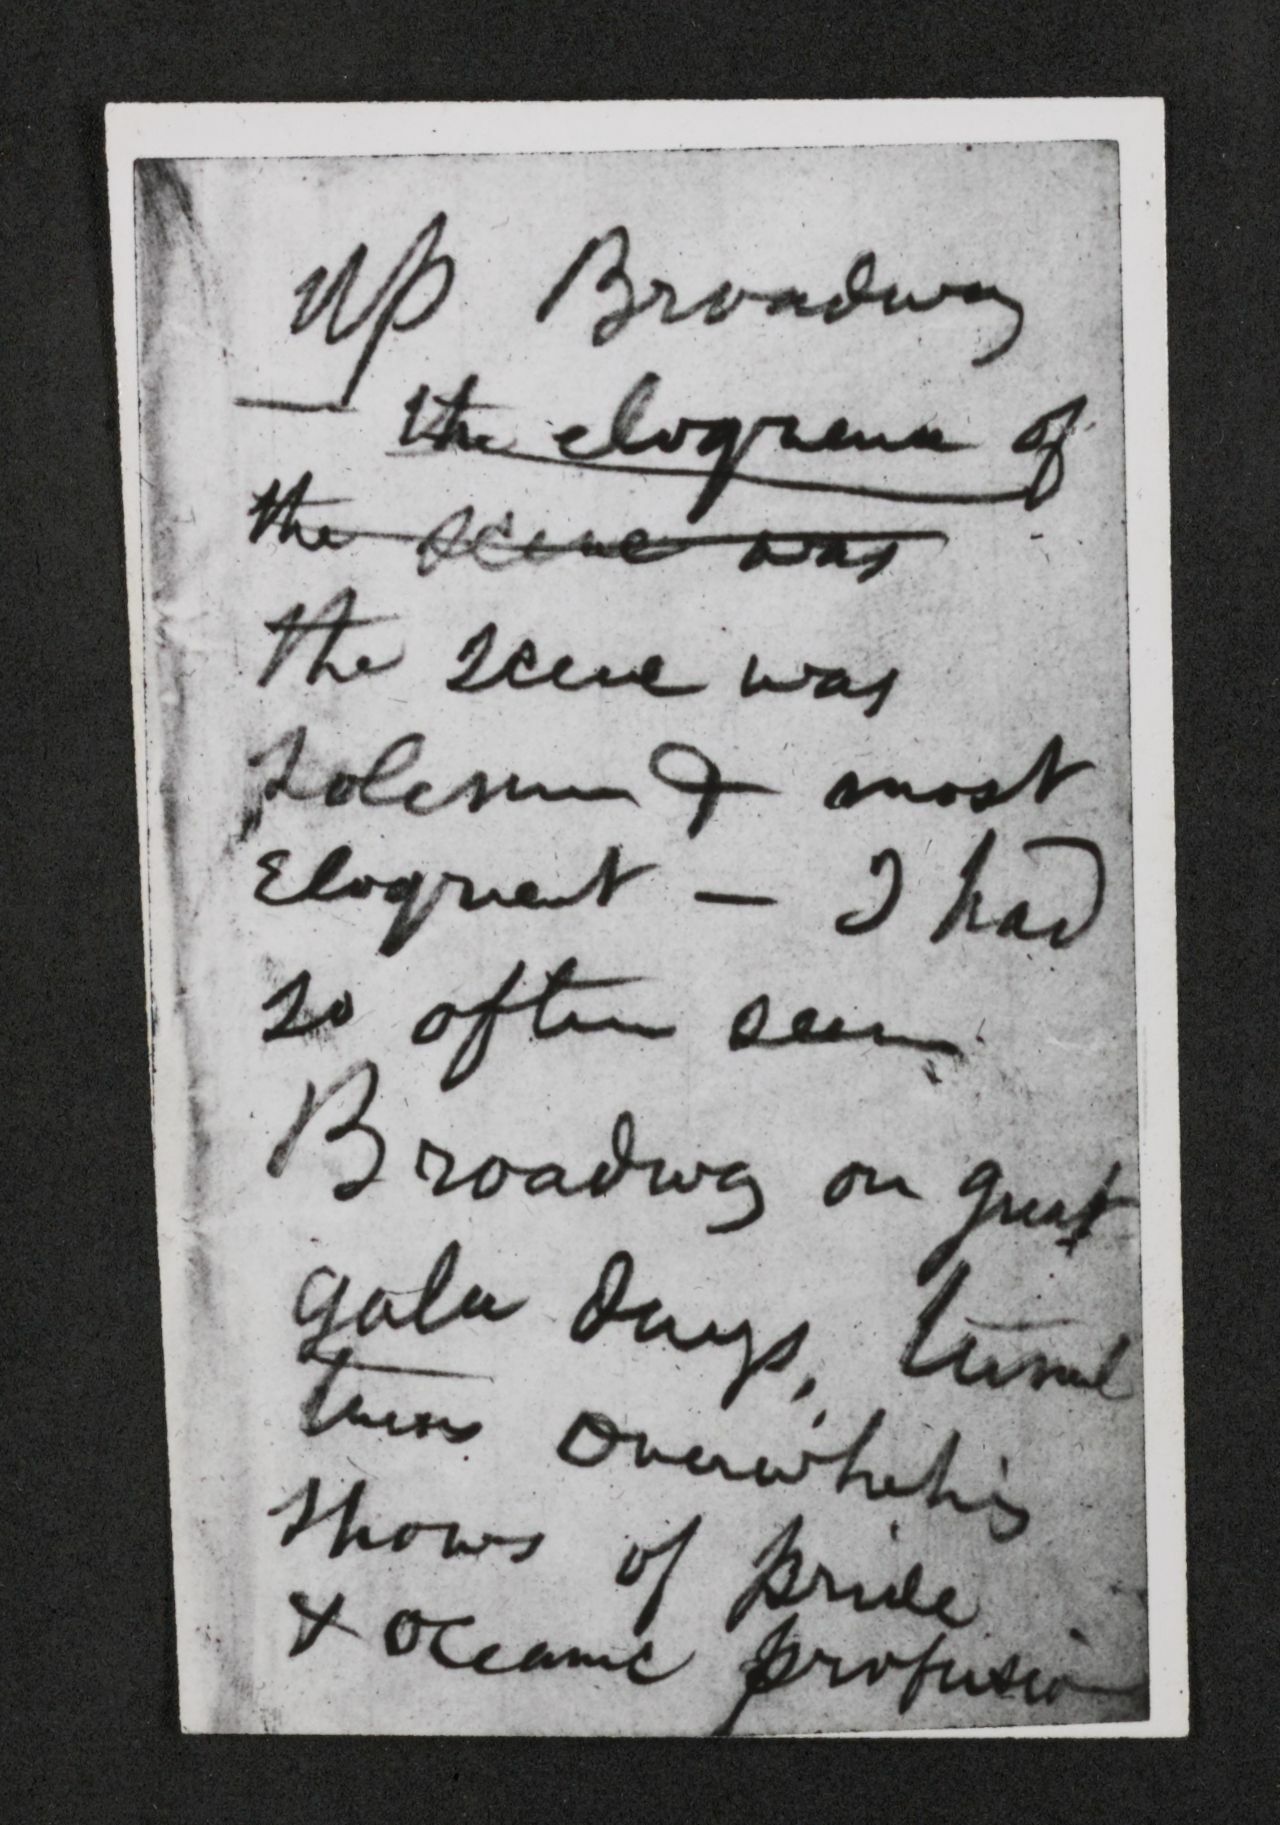 Up Broadway
— the eloquence of
the scene was
the scene was
solemn & most
eloquent — I had
so often seen
Broadway on great
gala days, tumul
tuous overwhelming
shows of pride
& oceanic profusion